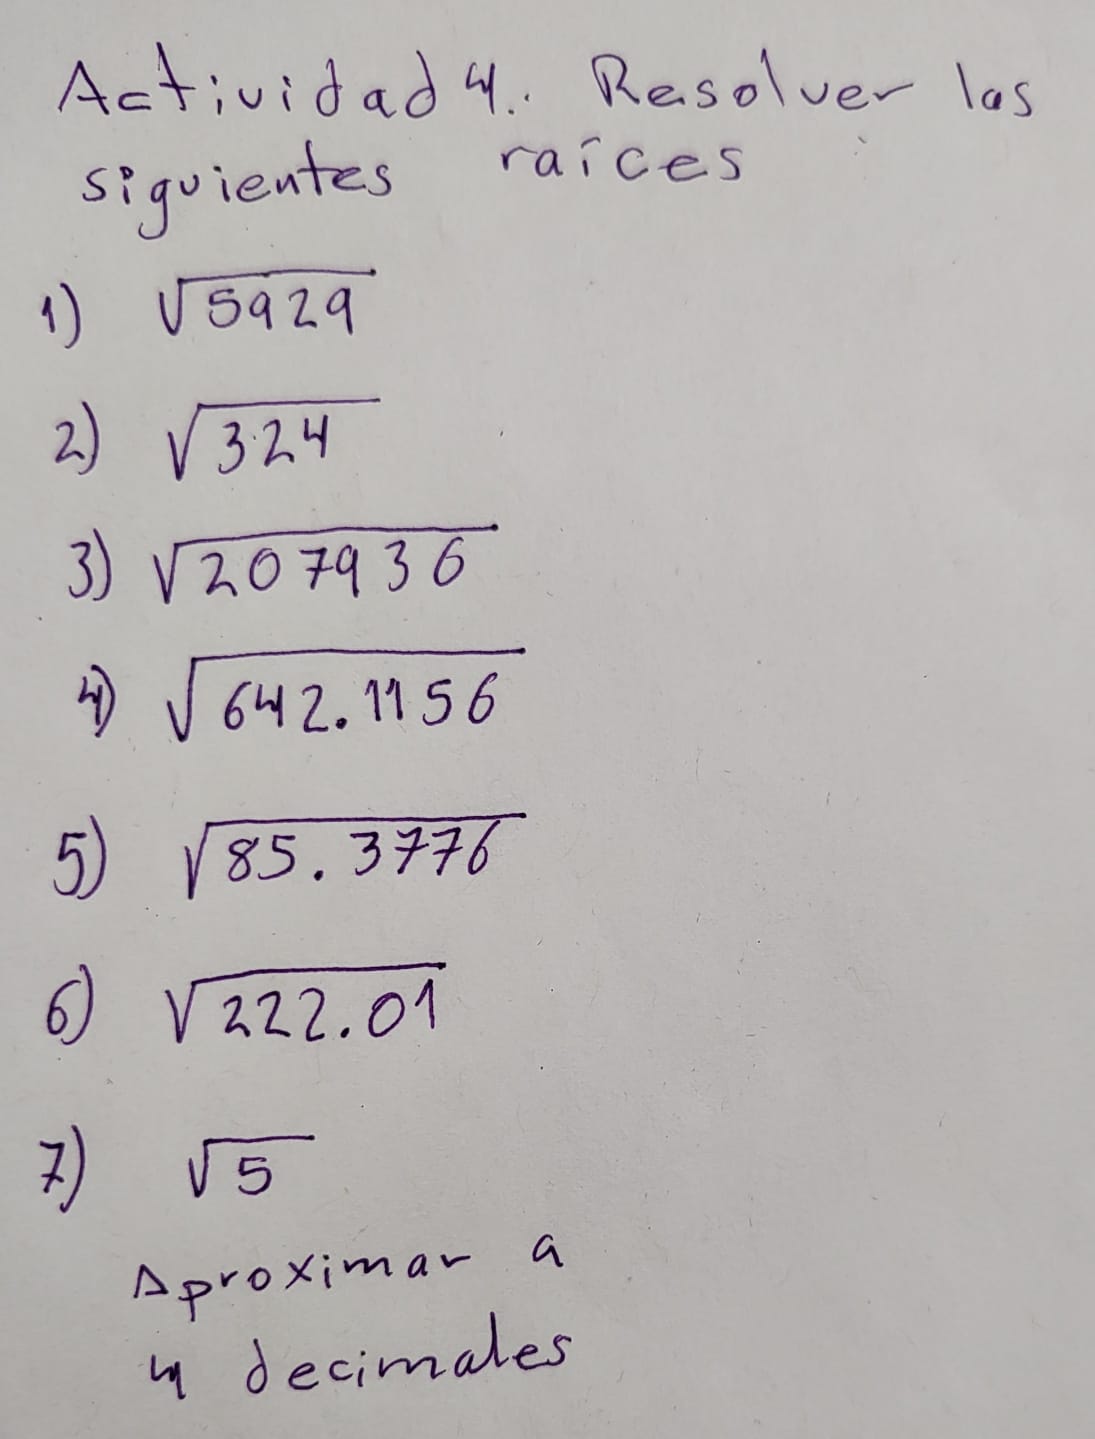 Actividad 4. Resolver las
siguientes raíces
1) √5929
2) √324
3) √207936
4) √642.1156
5) √85.3776
6) √222.01
7) √5
Aproximar a
4 decimales